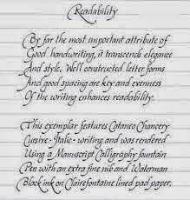 Readability
By far the most important attribute of
Good handwriting, it transcends elegance
And style. Well constructed letter forms
And good spacing are key and evenness
Of the writing enhances readability.
This exemplar features Cataneo Chancery
Cursive-Italic - writing and was rendered
Using a Manuscript Calligraphy fountain
Pen with an extra fine nib and Waterman
Black ink on Clairefontaine lined pad paper.